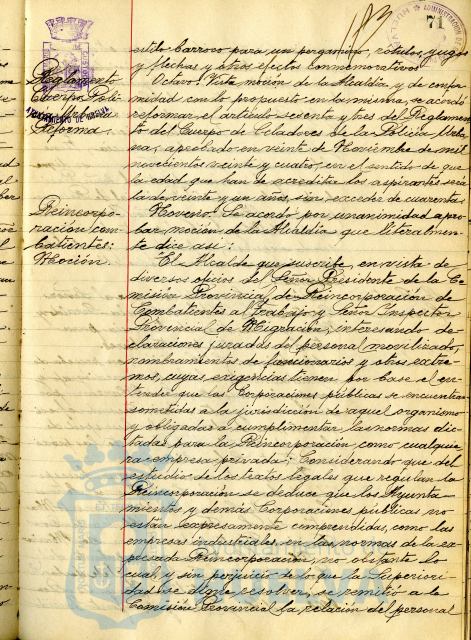 71
estilo barroco para un pergamino, rótulos, yugos
y flechas y otros efectos conmemorativos
Reglamento
Cuerpo Poli-
Reforma.
AYUNTAMIENTO DE HUELVA
Octavo. Vista moción de la Alcaldía, y de confor-
midad con lo propuesto en la misma, se acordó
reformar el artículo sesenta y tres del Reglamen-
to del Cuerpo de Celadores de la Policía Urba-
na, aprobado en veinte de Noviembre de mil
novecientos veinte y cuatro, en el sentido de que
la edad que han de acreditar los aspirantes será
la de veinte y un años, sin exceder de cuarenta.
Reincorpo-
ración com-
batientes:
Moción.
Noveno. Se acordó por unanimidad apro-
bar moción de la Alcaldía que literalmen-
te dice así:
"El Alcalde que suscribe, en vista de
diversos oficios del Señor Presidente de la Co-
misión Provincial de Reincorporación de
Combatientes al Trabajo y Señor Inspector
Provincial de Migración, interesando de-
claraciones juradas del personal movilizado,
nombramientos de funcionarios y otros extre-
mos, cuyas exigencias tienen por base el en-
tender que las Corporaciones públicas se encuentran
sometidas a la jurisdicción de aquel organismo
y obligadas a cumplimentar las normas dic-
tadas para la Reincorporación como cualquie-
ra empresa privada; Considerando que del
estudio de los textos legales que regulan la
Reincorporación se deduce que los Ayunta-
mientos y demás Corporaciones públicas no
están expresamente comprendidas, como las
empresas industriales, en las normas de la ex-
presada Reincorporación, no obstante lo
cual y sin perjuicio de lo que la Superiori-
dad se digne resolver, se remitió a la
Comisión Provincial la relación del personal